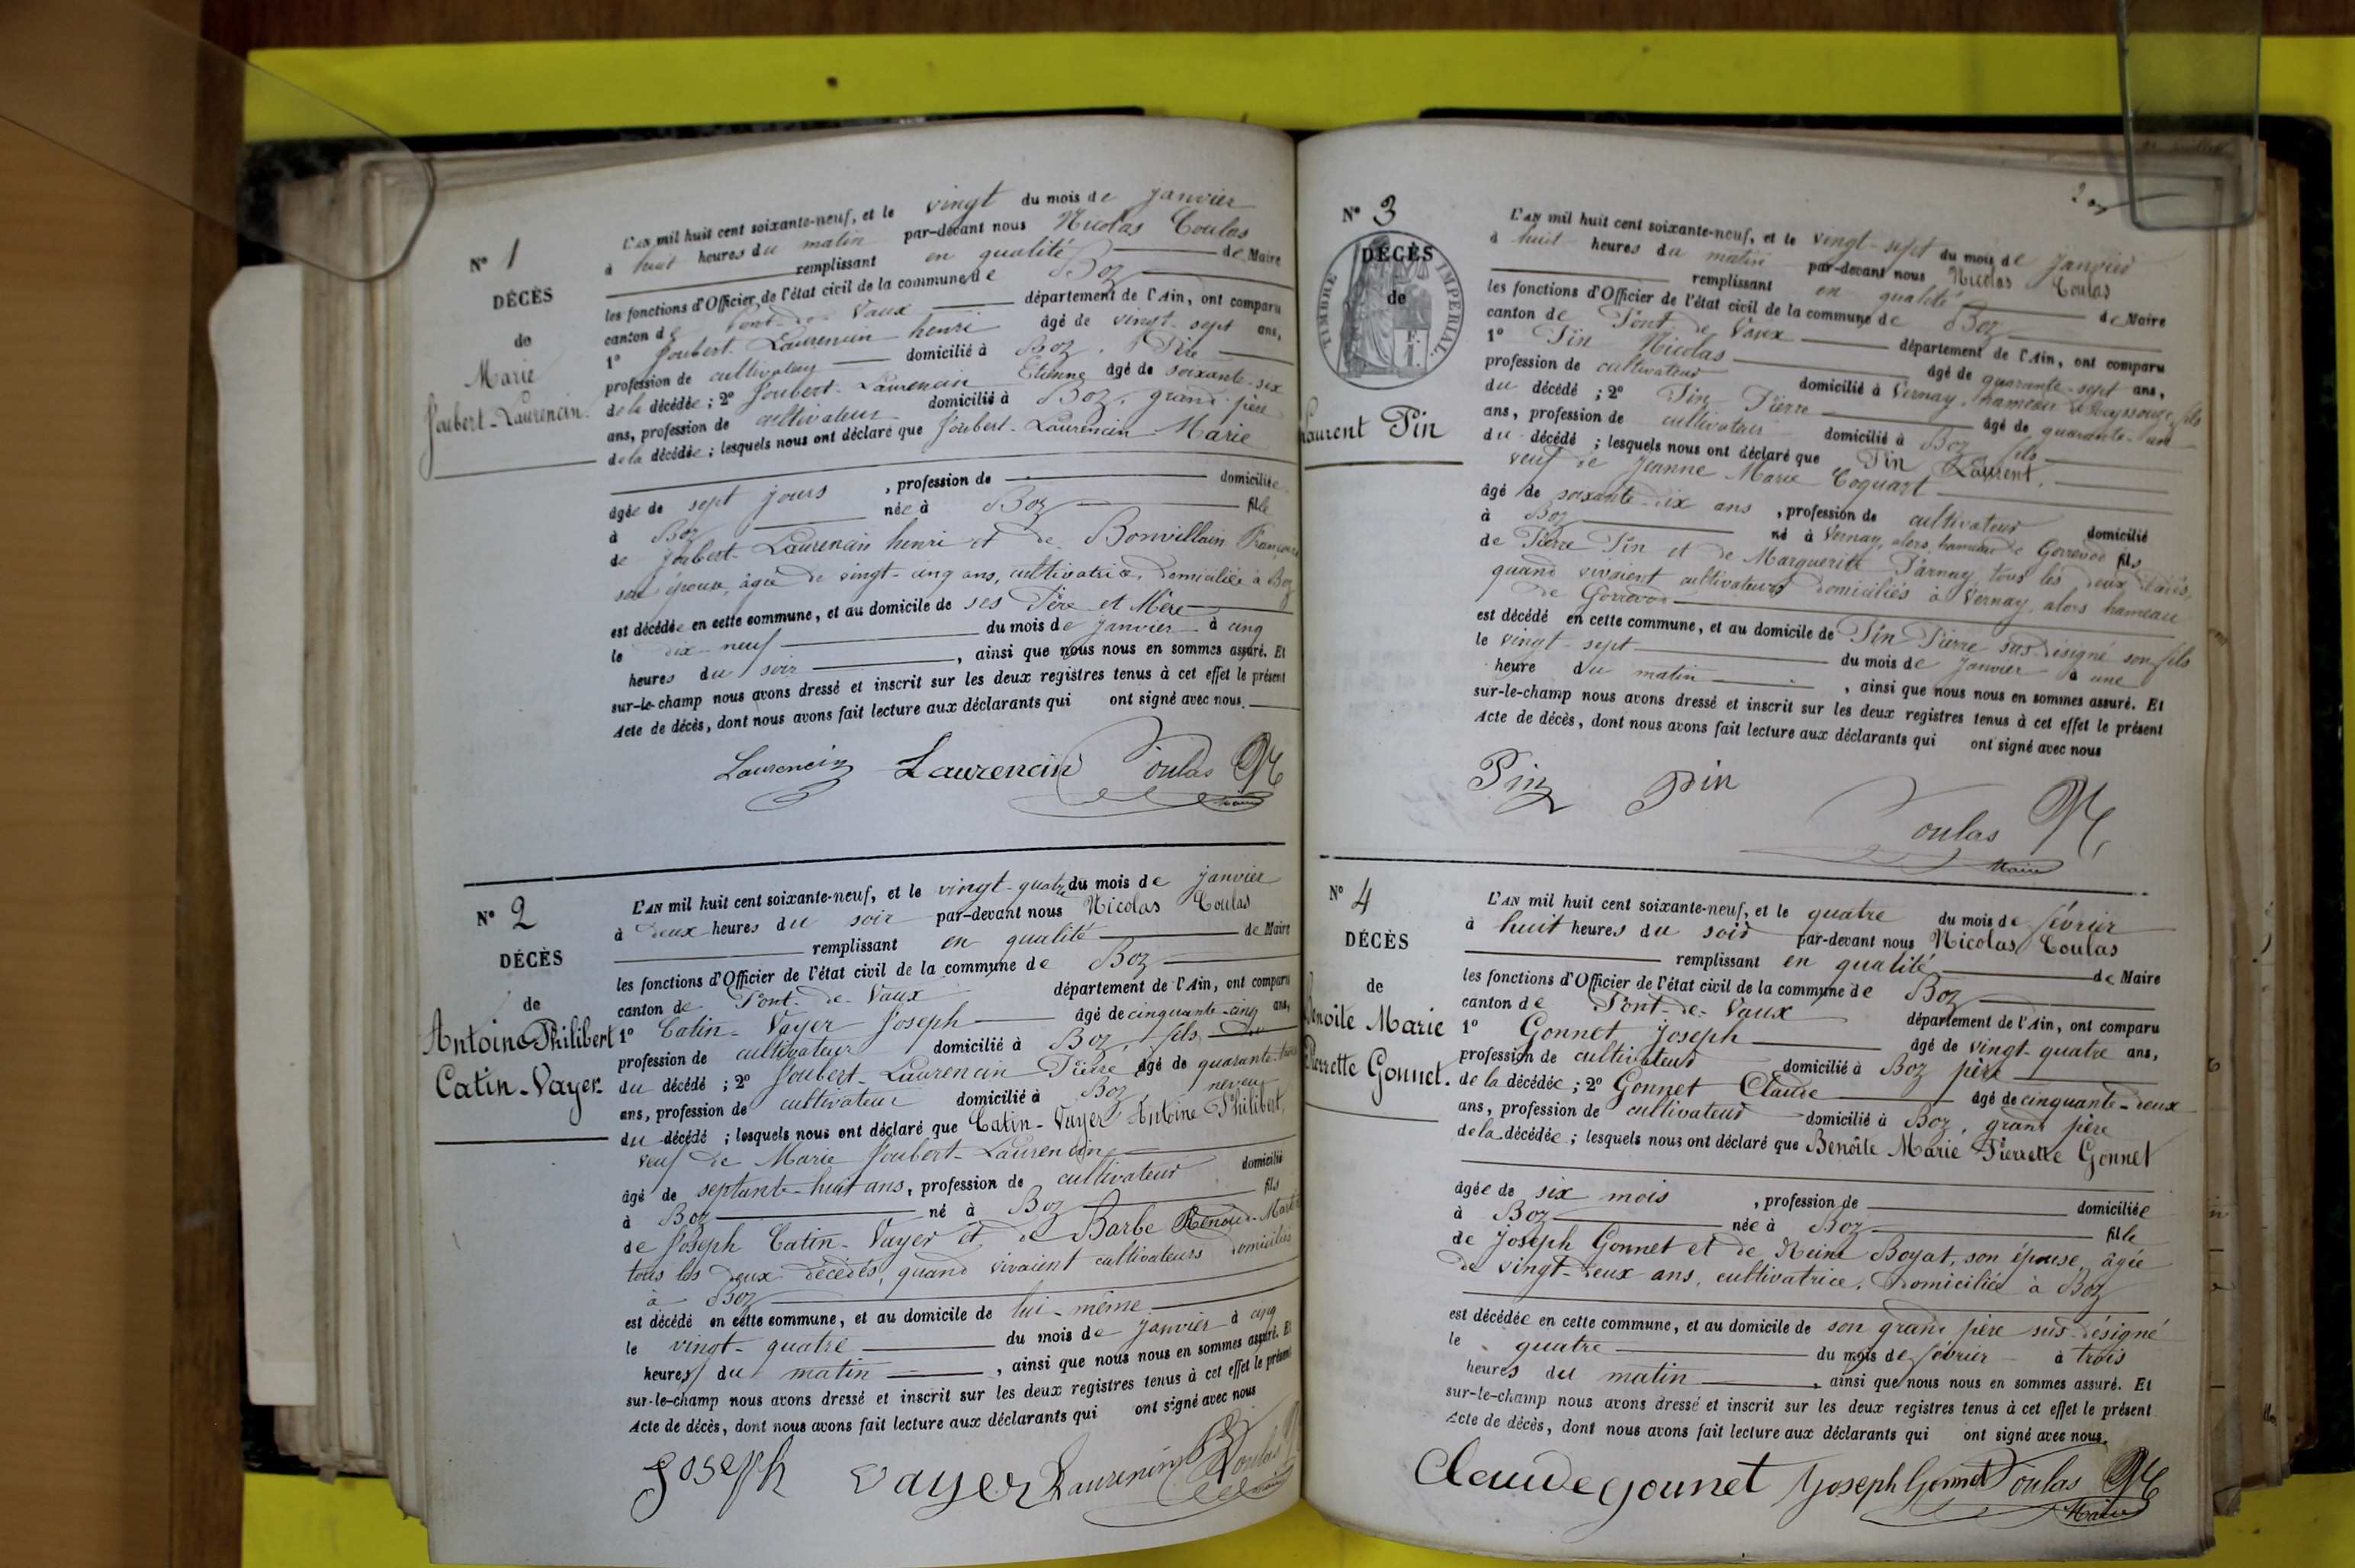 N° 1
DÉCÈS
de
Marie
Joubert-Laurencin.
L'AN mil huit cent soixante-neuf, et le vingt du mois de janvier
à huit heures du matin par-devant nous Nicolas Coulas
remplissant en qualité de Maire
les fonctions d'Officier de l'état civil de la commune de Boz
canton de Pont-de-Vaux département de l'Ain, ont comparu
1° Joubert-Laurencin henri âgé de vingt-sept ans,
profession de cultivateur domicilié à Boz, Père
de la décédée ; 2° Joubert-Laurencin Etienne âgé de soixante-six
ans, profession de cultivateur domicilié à Boz, grand-père
de la décédée ; lesquels nous ont déclaré que Joubert-Laurencin Marie
âgée de sept jours , profession de domiciliée
à Boz née à Boz fille
de Joubert-Laurencin henri et de Bonvillain Françoise
son épouse, âgée de vingt-cinq ans, cultivatrice, domiciliée à Boz
est décédée en cette commune, et au domicile de ses Père et Mère
le dix-neuf du mois de janvier à cinq
heures du soir , ainsi que nous nous en sommes assuré. Et
sur-le-champ nous avons dressé et inscrit sur les deux registres tenus à cet effet le présent
Acte de décès, dont nous avons fait lecture aux déclarants qui ont signé avec nous.
Laurencin Laurencin Coulas N
Maire
N° 2
DÉCÈS
de
Antoine Philibert
Catin-Vayer.
L'AN mil huit cent soixante-neuf, et le vingt-quatre du mois de janvier
à deux heures du soir par-devant nous Nicolas Coulas
remplissant en qualité de Maire
les fonctions d'Officier de l'état civil de la commune de Boz
canton de Pont-de-Vaux département de l'Ain, ont comparu
1° Catin-Vayer Joseph âgé de cinquante-cinq ans,
profession de cultivateur domicilié à Boz, fils
du décédé ; 2° Joubert-Laurencin Pierre âgé de quarante-trois
ans, profession de cultivateur domicilié à Boz neveu
du décédé ; lesquels nous ont déclaré que Catin-Vayer Antoine Philibert,
veuf de Marie Joubert-Laurencin
âgé de septante-huit ans, profession de cultivateur domicilié
à Boz né à Boz fils
de Joseph Catin-Vayer et de Barbe Renoud-Martin
tous les deux décédés, quand vivaient cultivateurs domiciliés
à Boz
est décédé en cette commune, et au domicile de lui-même
le vingt-quatre du mois de janvier à cinq
heures du matin , ainsi que nous nous en sommes assuré. Et
sur-le-champ nous avons dressé et inscrit sur les deux registres tenus à cet effet le présent
Acte de décès, dont nous avons fait lecture aux déclarants qui ont signé avec nous
Joseph vayer Laurencin P Coulas
Maire
N° 3
TIMBRE IMPÉRIAL
DÉCÈS
de
Laurent Pin
L'AN mil huit cent soixante-neuf, et le vingt-sept du mois de janvier
à huit heures du matin par-devant nous Nicolas Coulas
remplissant en qualité de Maire
les fonctions d'Officier de l'état civil de la commune de Boz
canton de Pont de Vaux département de l'Ain, ont comparu
1° Pin Nicolas âgé de quarante-sept ans,
profession de cultivateur domicilié à Vernay, hameau de Reyssouze, fils
du décédé ; 2° Pin Pierre âgé de quarante-un
ans, profession de cultivateur domicilié à Boz fils
du décédé ; lesquels nous ont déclaré que Pin Laurent,
veuf de Jeanne Marie Coquart
âgé de soixante-dix ans , profession de cultivateur domicilié
à Boz né à Vernay, alors hameau de Gorrevod fils
de Pierre Pin et de Marguerite Parnay, tous les deux décédés,
quand vivaient cultivateurs domiciliés à Vernay, alors hameau
de Gorrevod
est décédé en cette commune, et au domicile de Pin Pierre sus-désigné son fils
le vingt-sept du mois de janvier à une
heure du matin , ainsi que nous nous en sommes assuré. Et
sur-le-champ nous avons dressé et inscrit sur les deux registres tenus à cet effet le présent
Acte de décès, dont nous avons fait lecture aux déclarants qui ont signé avec nous
Pin Pin
Coulas N
Maire
N° 4
DÉCÈS
de
Benoîte Marie
Pierrette Gonnet.
L'AN mil huit cent soixante-neuf, et le quatre du mois de février
à huit heures du soir par-devant nous Nicolas Coulas
remplissant en qualité de Maire
les fonctions d'Officier de l'état civil de la commune de Boz
canton de Pont-de-Vaux département de l'Ain, ont comparu
1° Gonnet Joseph âgé de vingt-quatre ans,
profession de cultivateur domicilié à Boz père
de la décédée ; 2° Gonnet Claude âgé de cinquante-deux
ans, profession de cultivateur domicilié à Boz, grand père
de la décédée ; lesquels nous ont déclaré que Benoîte Marie Pierrette Gonnet
âgée de six mois , profession de domiciliée
à Boz née à Boz fille
de Joseph Gonnet et de Reine Boyat, son épouse, âgée
de vingt-deux ans, cultivatrice, domiciliée à Boz
est décédée en cette commune, et au domicile de son grand père sus-désigné
le quatre du mois de février à trois
heures du matin , ainsi que nous nous en sommes assuré. Et
sur-le-champ nous avons dressé et inscrit sur les deux registres tenus à cet effet le présent
Acte de décès, dont nous avons fait lecture aux déclarants qui ont signé avec nous.
Claude gounet Joseph Gonnet Coulas N
Maire